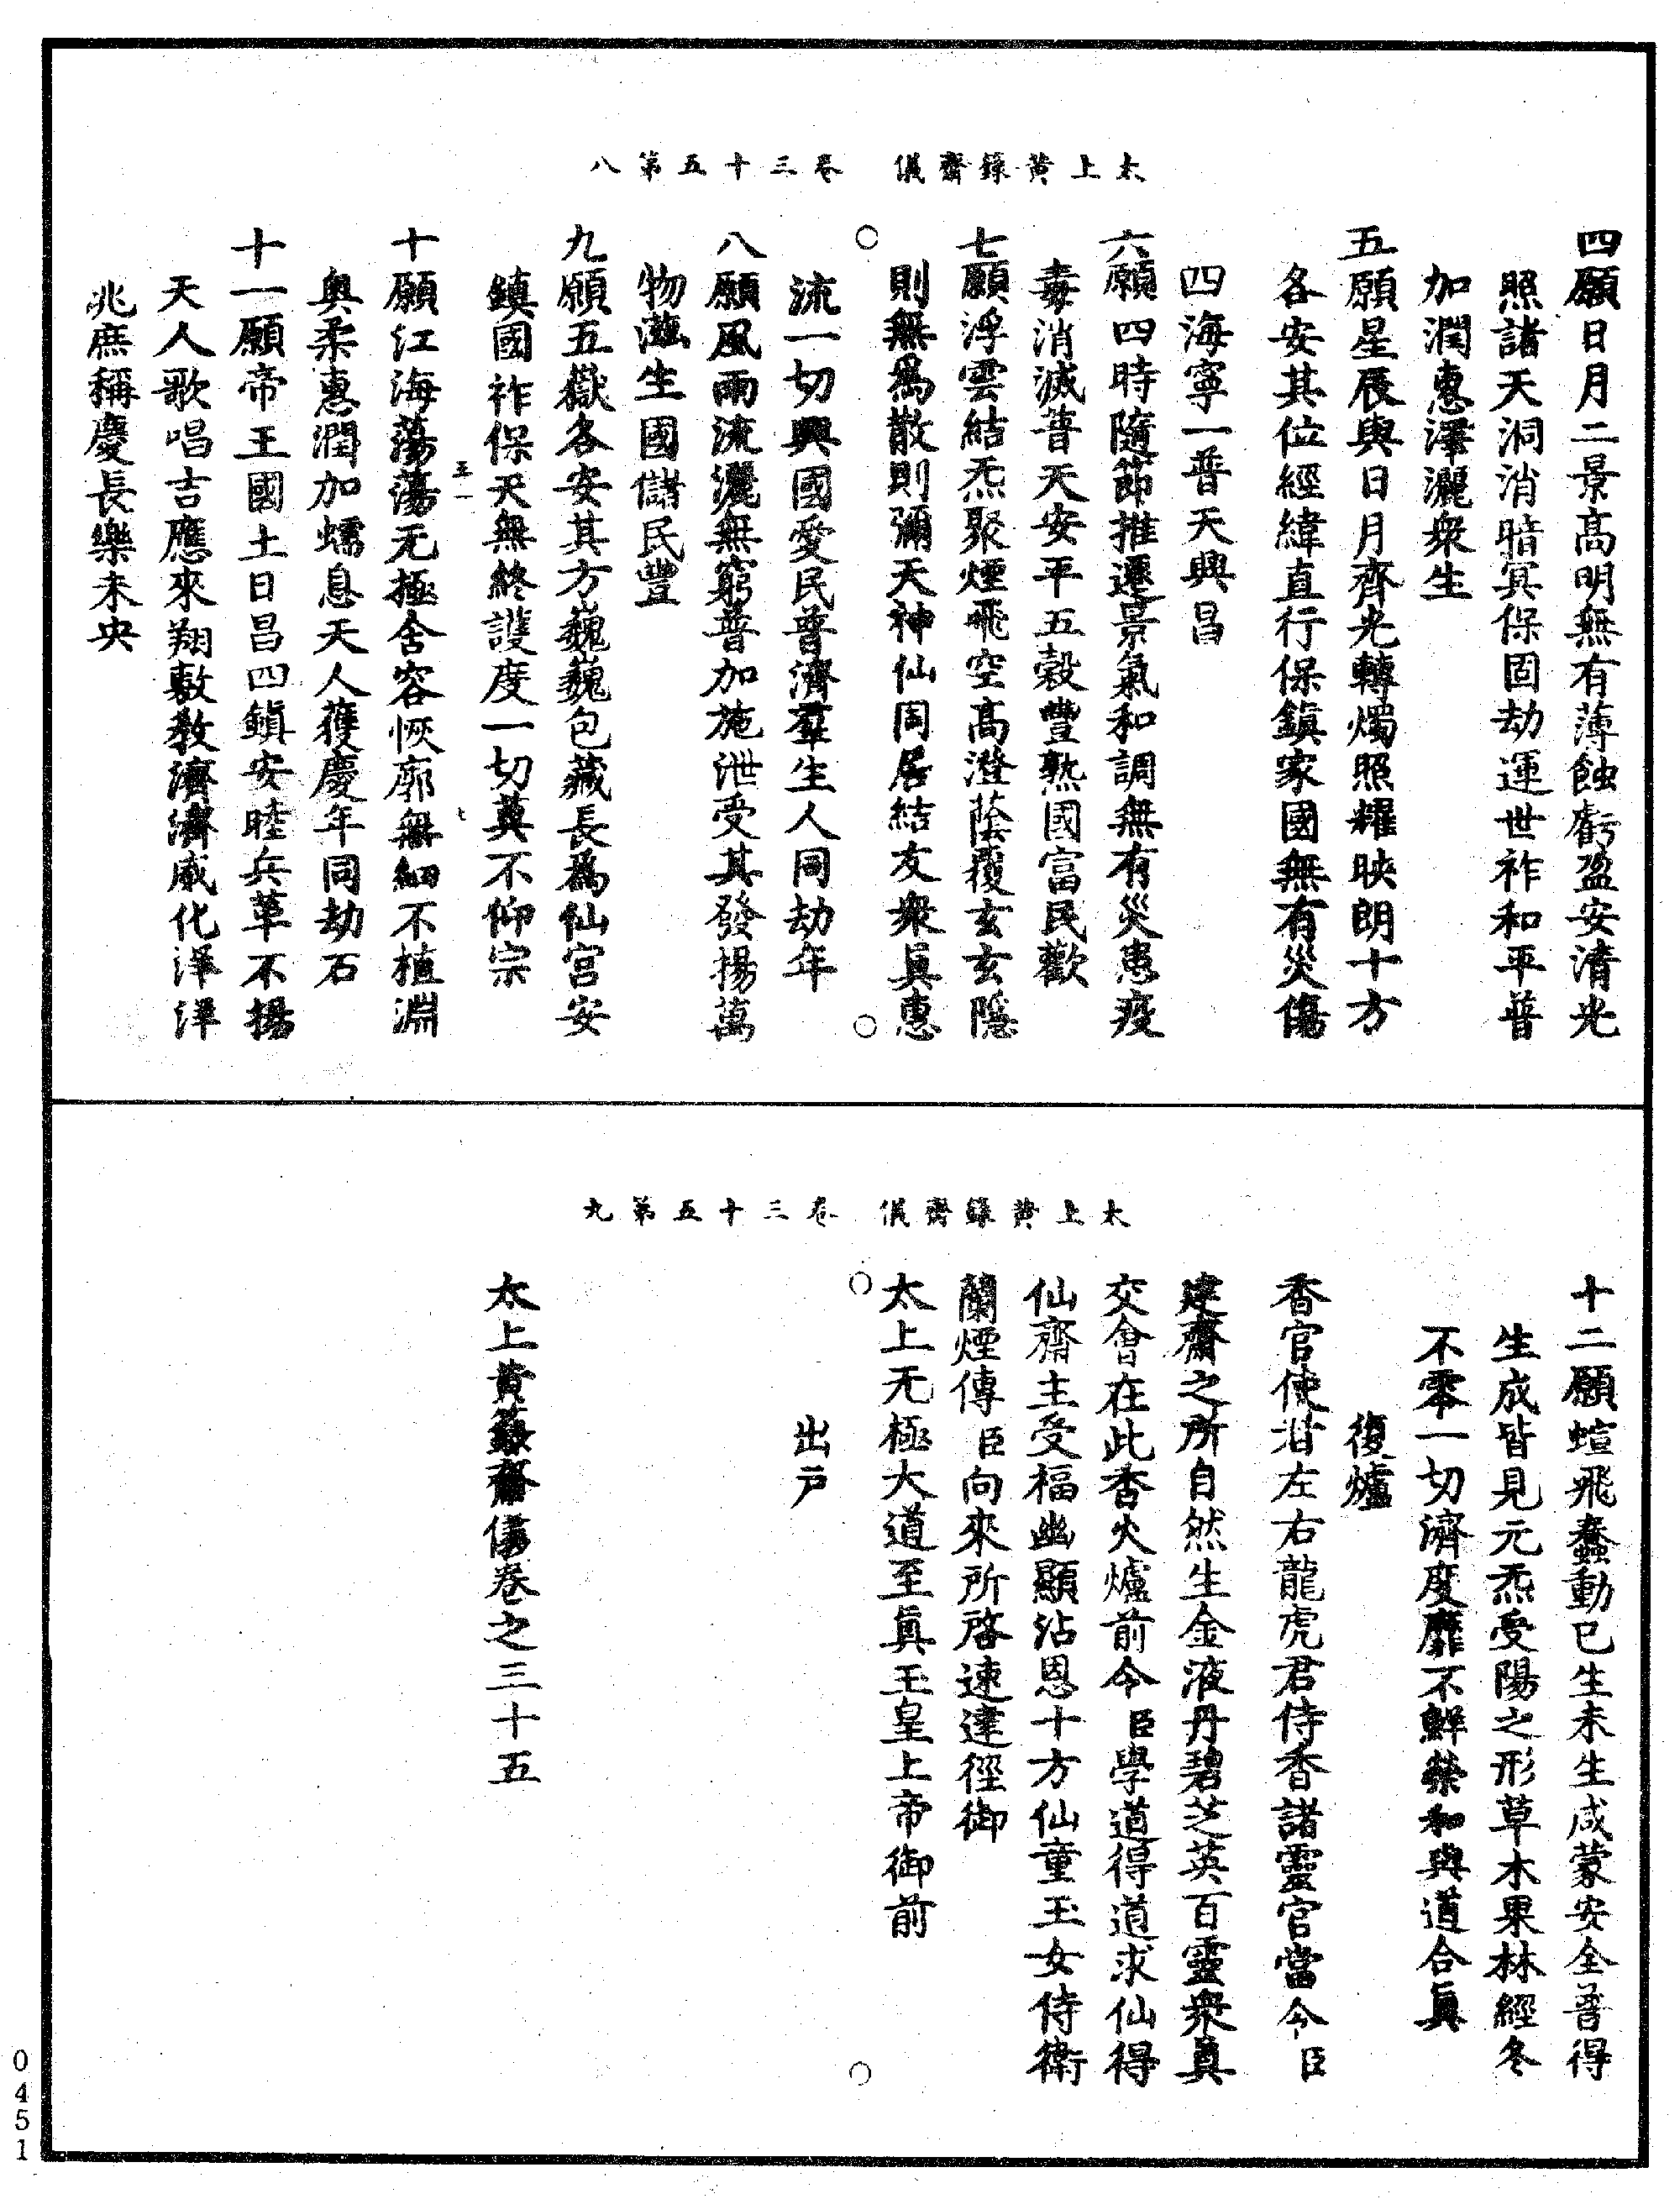 太上黃籙齋儀　卷三十五第八
四願日月二景高明無有薄蝕虧盈安清光
照諸天洞消暗冥保固劫運世祚和平普
加潤惠澤灑衆生
五願星辰與日月齊光轉燭照耀映朗十方
各安其位經緯直行保鎮家國無有災傷
四海寧一普天興昌
六願四時隨節推遷景氣和調無有災患疫
毒消滅普天安平五穀豐熟國富民歡
七願浮雲結炁聚煙飛空高澄蔭覆玄玄隱
則無爲散則彌天神仙同居結友衆眞惠
流一切興國愛民普濟羣生人同劫年
八願風雨流灑無窮普加施泄受其發揚萬
物滋生國儲民豐
九願五嶽各安其方巍巍包藏長爲仙宮安
鎮國祚保天無終護度一切莫不仰宗
十願江海蕩蕩无極含容恢廓無細不植淵
奧柔惠潤加蠕息天人獲慶年同劫石
十一願帝王國土日昌四鎮安睦兵革不揚
天人歌唱吉應來翔敷教濟濟威化洋洋
兆庶稱慶長樂未央
太上黃籙齋儀　卷三十五第九
十二願蝖飛蠢動已生未生咸蒙安全普得
生成皆見元炁受陽之形草木果林經冬
不零一切濟度靡不鮮榮和與道合眞
復爐
香官使者左右龍虎君侍香諸靈官當令臣
建齋之所自然生金液丹碧芝英百靈衆眞
交會在此香火爐前令臣學道得道求仙得
仙齋主受福幽顯沾恩十方仙童玉女侍衛
蘭煙傳臣向來所啓速達徑御
太上无極大道至眞玉皇上帝御前
出戶
太上黃籙齋儀卷之三十五
0451